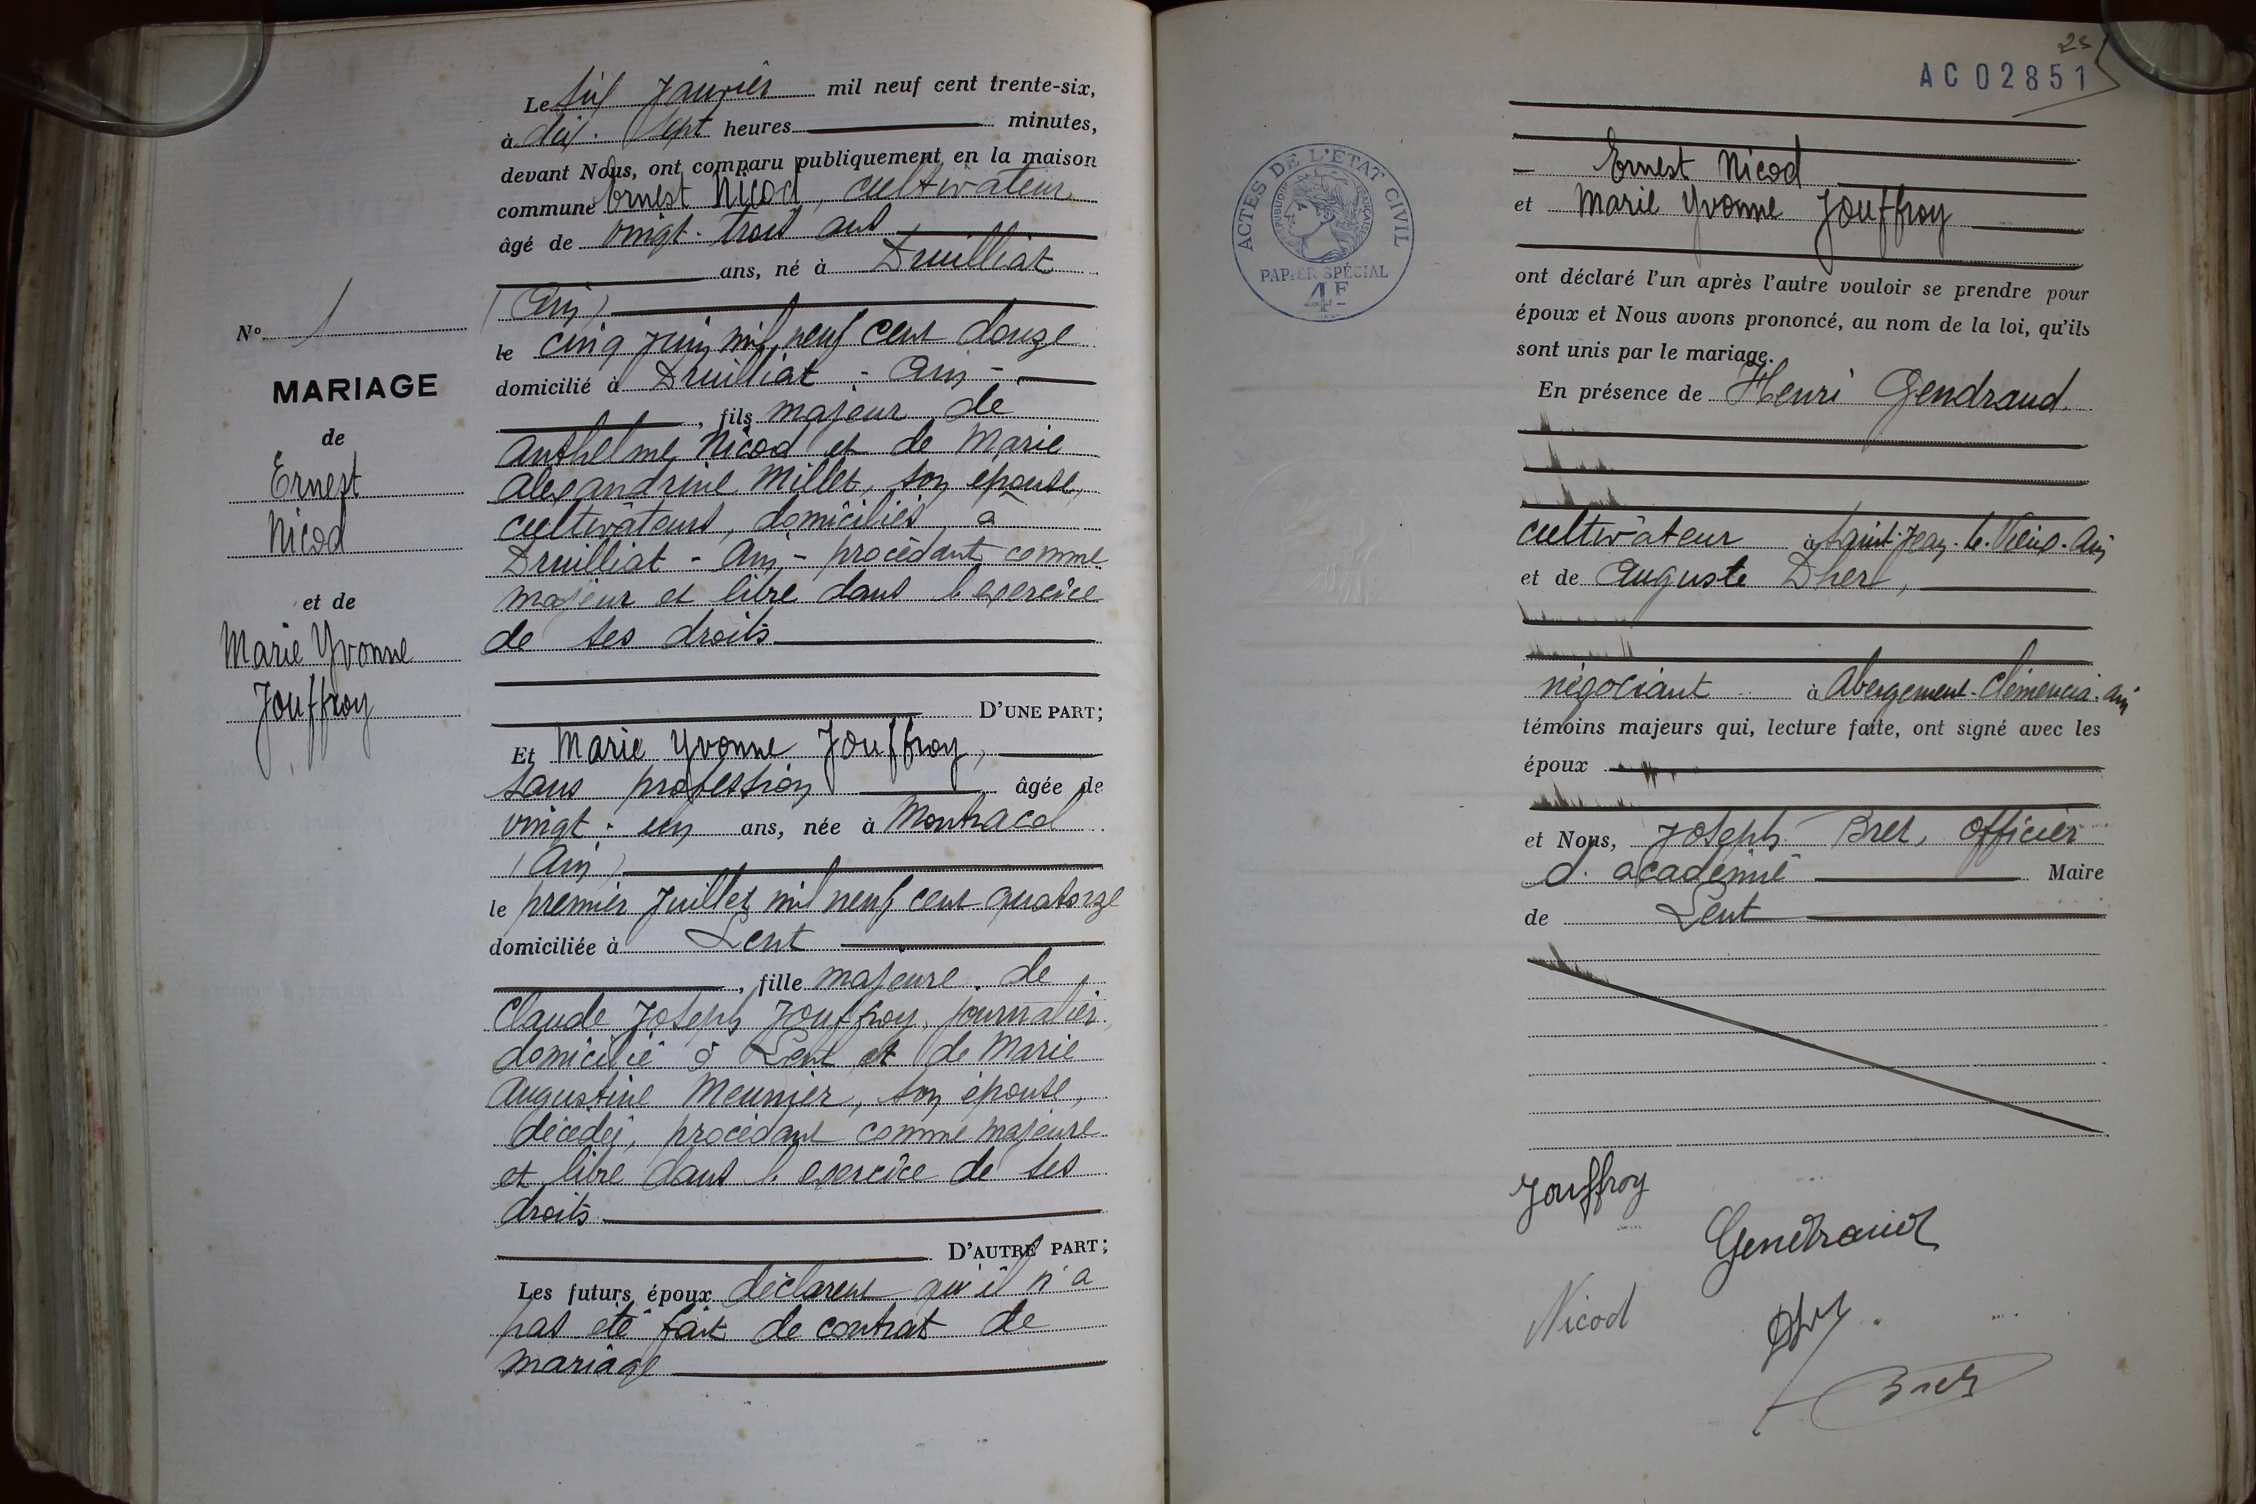 Le six Janvier mil neuf cent trente-six,
à dix-sept heures minutes,
devant Nous, ont comparu publiquement en la maison
commune Ernest Nicod, cultivateur
âgé de vingt-trois ans
ans, né à Druilliat
(Ain)
le cinq Juin mil neuf cent douze
domicilié à Druilliat - Ain -
, fils majeur de
Anthelme Nicod et de Marie
Alexandrine Millet, son épouse,
cultivateurs, domiciliés à
Druilliat - Ain - procédant comme
majeur et libre dans l'exercice
de ses droits
D'UNE PART;
Et Marie Yvonne Jouffroy,
sans profession âgée de
vingt-un ans, née à Montracol
(Ain)
le premier Juillet mil neuf cent quatorze
domiciliée à Lent
, fille majeure de
Claude Joseph Jouffroy, journalier,
domicilié à Lent et de Marie
Augustine Meunier, son épouse,
décédée, procédant comme majeure
et libre dans l'exercice de ses
droits
D'AUTRE PART;
Les futurs époux déclarent qu'il n'a
pas été fait de contrat de
mariage
N° 1
MARIAGE
de
Ernest
Nicod
et de
Marie Yvonne
Jouffroy
25
AC02851
ACTES DE L'ETAT CIVIL
REPUBLIQUE FRANCAISE
PAPIER SPÉCIAL
4F
Ernest Nicod
et Marie Yvonne Jouffroy
ont déclaré l'un après l'autre vouloir se prendre pour
époux et Nous avons prononcé, au nom de la loi, qu'ils
sont unis par le mariage.
En présence de Henri Gendraud.
cultivateur à Saint-Jean-le-Vieux-Ain
et de Auguste Dher,
négociant à Abergement-Clémencia-Ain
témoins majeurs qui, lecture faite, ont signé avec les
époux
et Nous, Joseph Bret, officier
d'académie Maire
de Lent
Jouffroy
Gendraud
Nicod
Bret